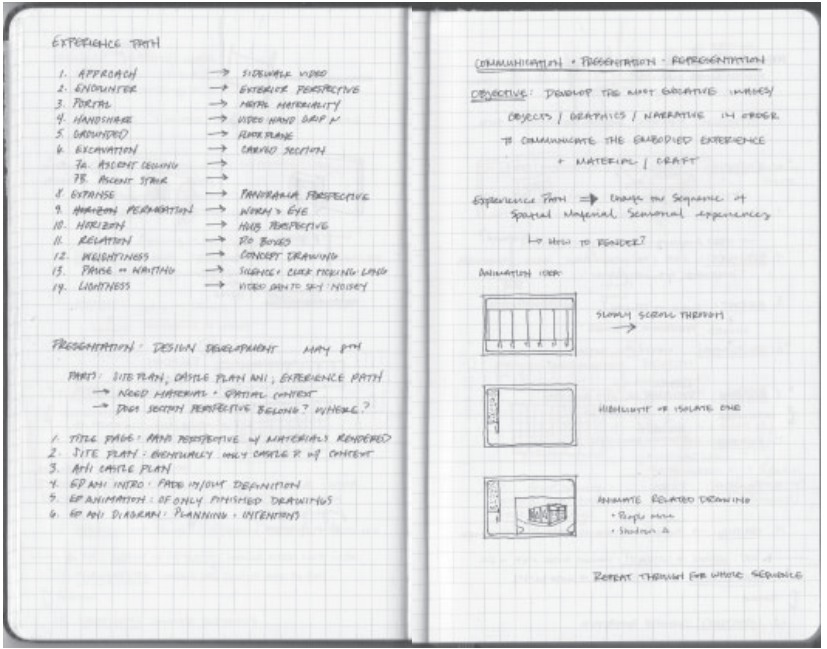 EXPERIENCE PATH
1. APPROACH → SIDEWALK VIDEO
2. ENCOUNTER → EXTERIOR PERSPECTIVE
3. PORTAL → METAL MATERIALITY
4. HANDSHAKE → VIDEO HAND GRIP
5. GROUNDED → FLOOR PLANE
6. EXCAVATION → CARVED SECTION
7A. ASCENT CEILING →
7B. ASCENT STAIR →
8. EXPANSE → PANORAMA PERSPECTIVE
9. HORIZON PERMEATION → WORM'S EYE
10. HORIZON → HUB PERSPECTIVE
11. RELATION → PO BOXES
12. WEIGHTINESS → CONCEPT DRAWING
13. PAUSE or WAITING → SILENCE + CLOCK TICKING
14. LIGHTNESS → VIDEO PAN TO SKY NOISEY
PRESENTATION: DESIGN DEVELOPMENT MAY 8TH
PARTS: SITE PLAN, CASTLE PLAN ANI, EXPERIENCE PATH
→ NEED MATERIAL + SPATIAL CONTEXT
→ DOES SECTION PERSPECTIVE BELONG? WHERE?
1. TITLE PAGE: PANO PERSPECTIVE w/ MATERIALS RENDERED
2. SITE PLAN: EVENTUALLY ONLY CASTLE P. w/ CONTEXT
3. ANI CASTLE PLAN
4. EP ANI INTRO: FADE IN/OUT DEFINITION
5. EP ANIMATION: OF ONLY FINISHED DRAWINGS
6. EP ANI DIAGRAM: PLANNING + INTENTIONS
COMMUNICATION + PRESENTATION + REPRESENTATION
OBJECTIVE: DEVELOP THE MOST EVOCATIVE IMAGES/
OBJECTS / GRAPHICS / NARRATIVE IN ORDER
TO COMMUNICATE THE EMBODIED EXPERIENCE
+ MATERIAL / CRAFT
Experience Path → the Sequence of
Spatial Material Sensorial experiences
↳ HOW TO RENDER?
ANIMATION IDEA:
SLOWLY SCROLL THROUGH
→
HIGHLIGHT OR ISOLATE ONE
ANIMATE RELATED DRAWING
• People move
• Shadows Δ
REPEAT THROUGH FOR WHOLE SEQUENCE